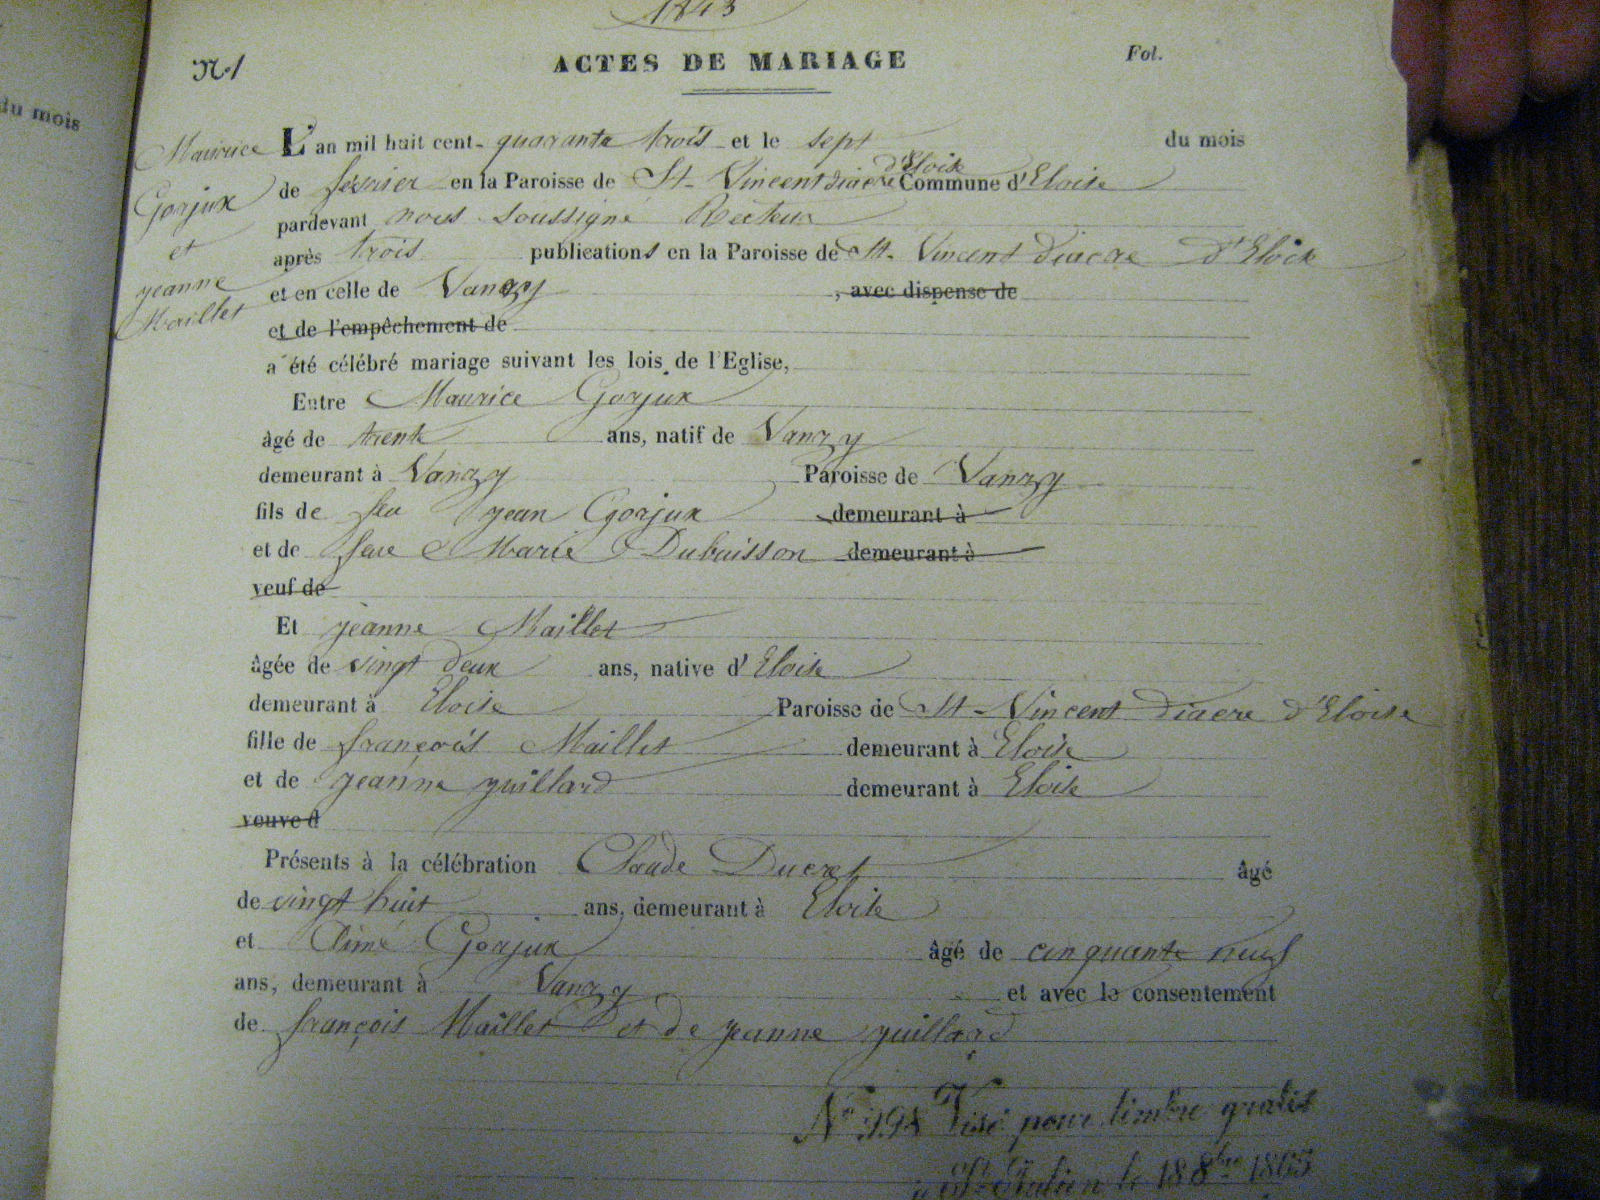 1843
N. 1
ACTES DE MARIAGE
Fol.
du mois
Maurice
Gorjux
et
jeanne
Maillet
L'an mil huit cent quarante trois et le sept du mois
d'Eloise
de février en la Paroisse de St. Vincent diacre Commune d'Eloise
pardevant nous soussigné Recteur
après trois publications en la Paroisse de St. Vincent diacre d'Eloise
et en celle de Vanzy , avec dispense de
et de l'empêchement de
a été célébré mariage suivant les lois de l'Eglise,
Entre Maurice Gorjux
âgé de trente ans, natif de Vanzy
demeurant à Vanzy Paroisse de Vanzy
fils de feu jean Gorjux demeurant à
et de feue Marie Dubuisson demeurant à
veuf de
Et jeanne Maillet
âgée de vingt deux ans, native d'Eloise
demeurant à Eloise Paroisse de St. Vincent diacre d'Eloise
fille de françois Maillet demeurant à Eloise
et de jeanne guillard demeurant à Eloise
veuve d
Présents à la célébration Claude Ducret âgé
de vingt huit ans, demeurant à Eloise
et Aimé Gorjux âgé de cinquante neuf
ans, demeurant à Vanzy et avec le consentement
de françois Maillet et de jeanne guillard
N° 998 Visé pour timbre gratis
à St. Julien le 18 8bre 1865